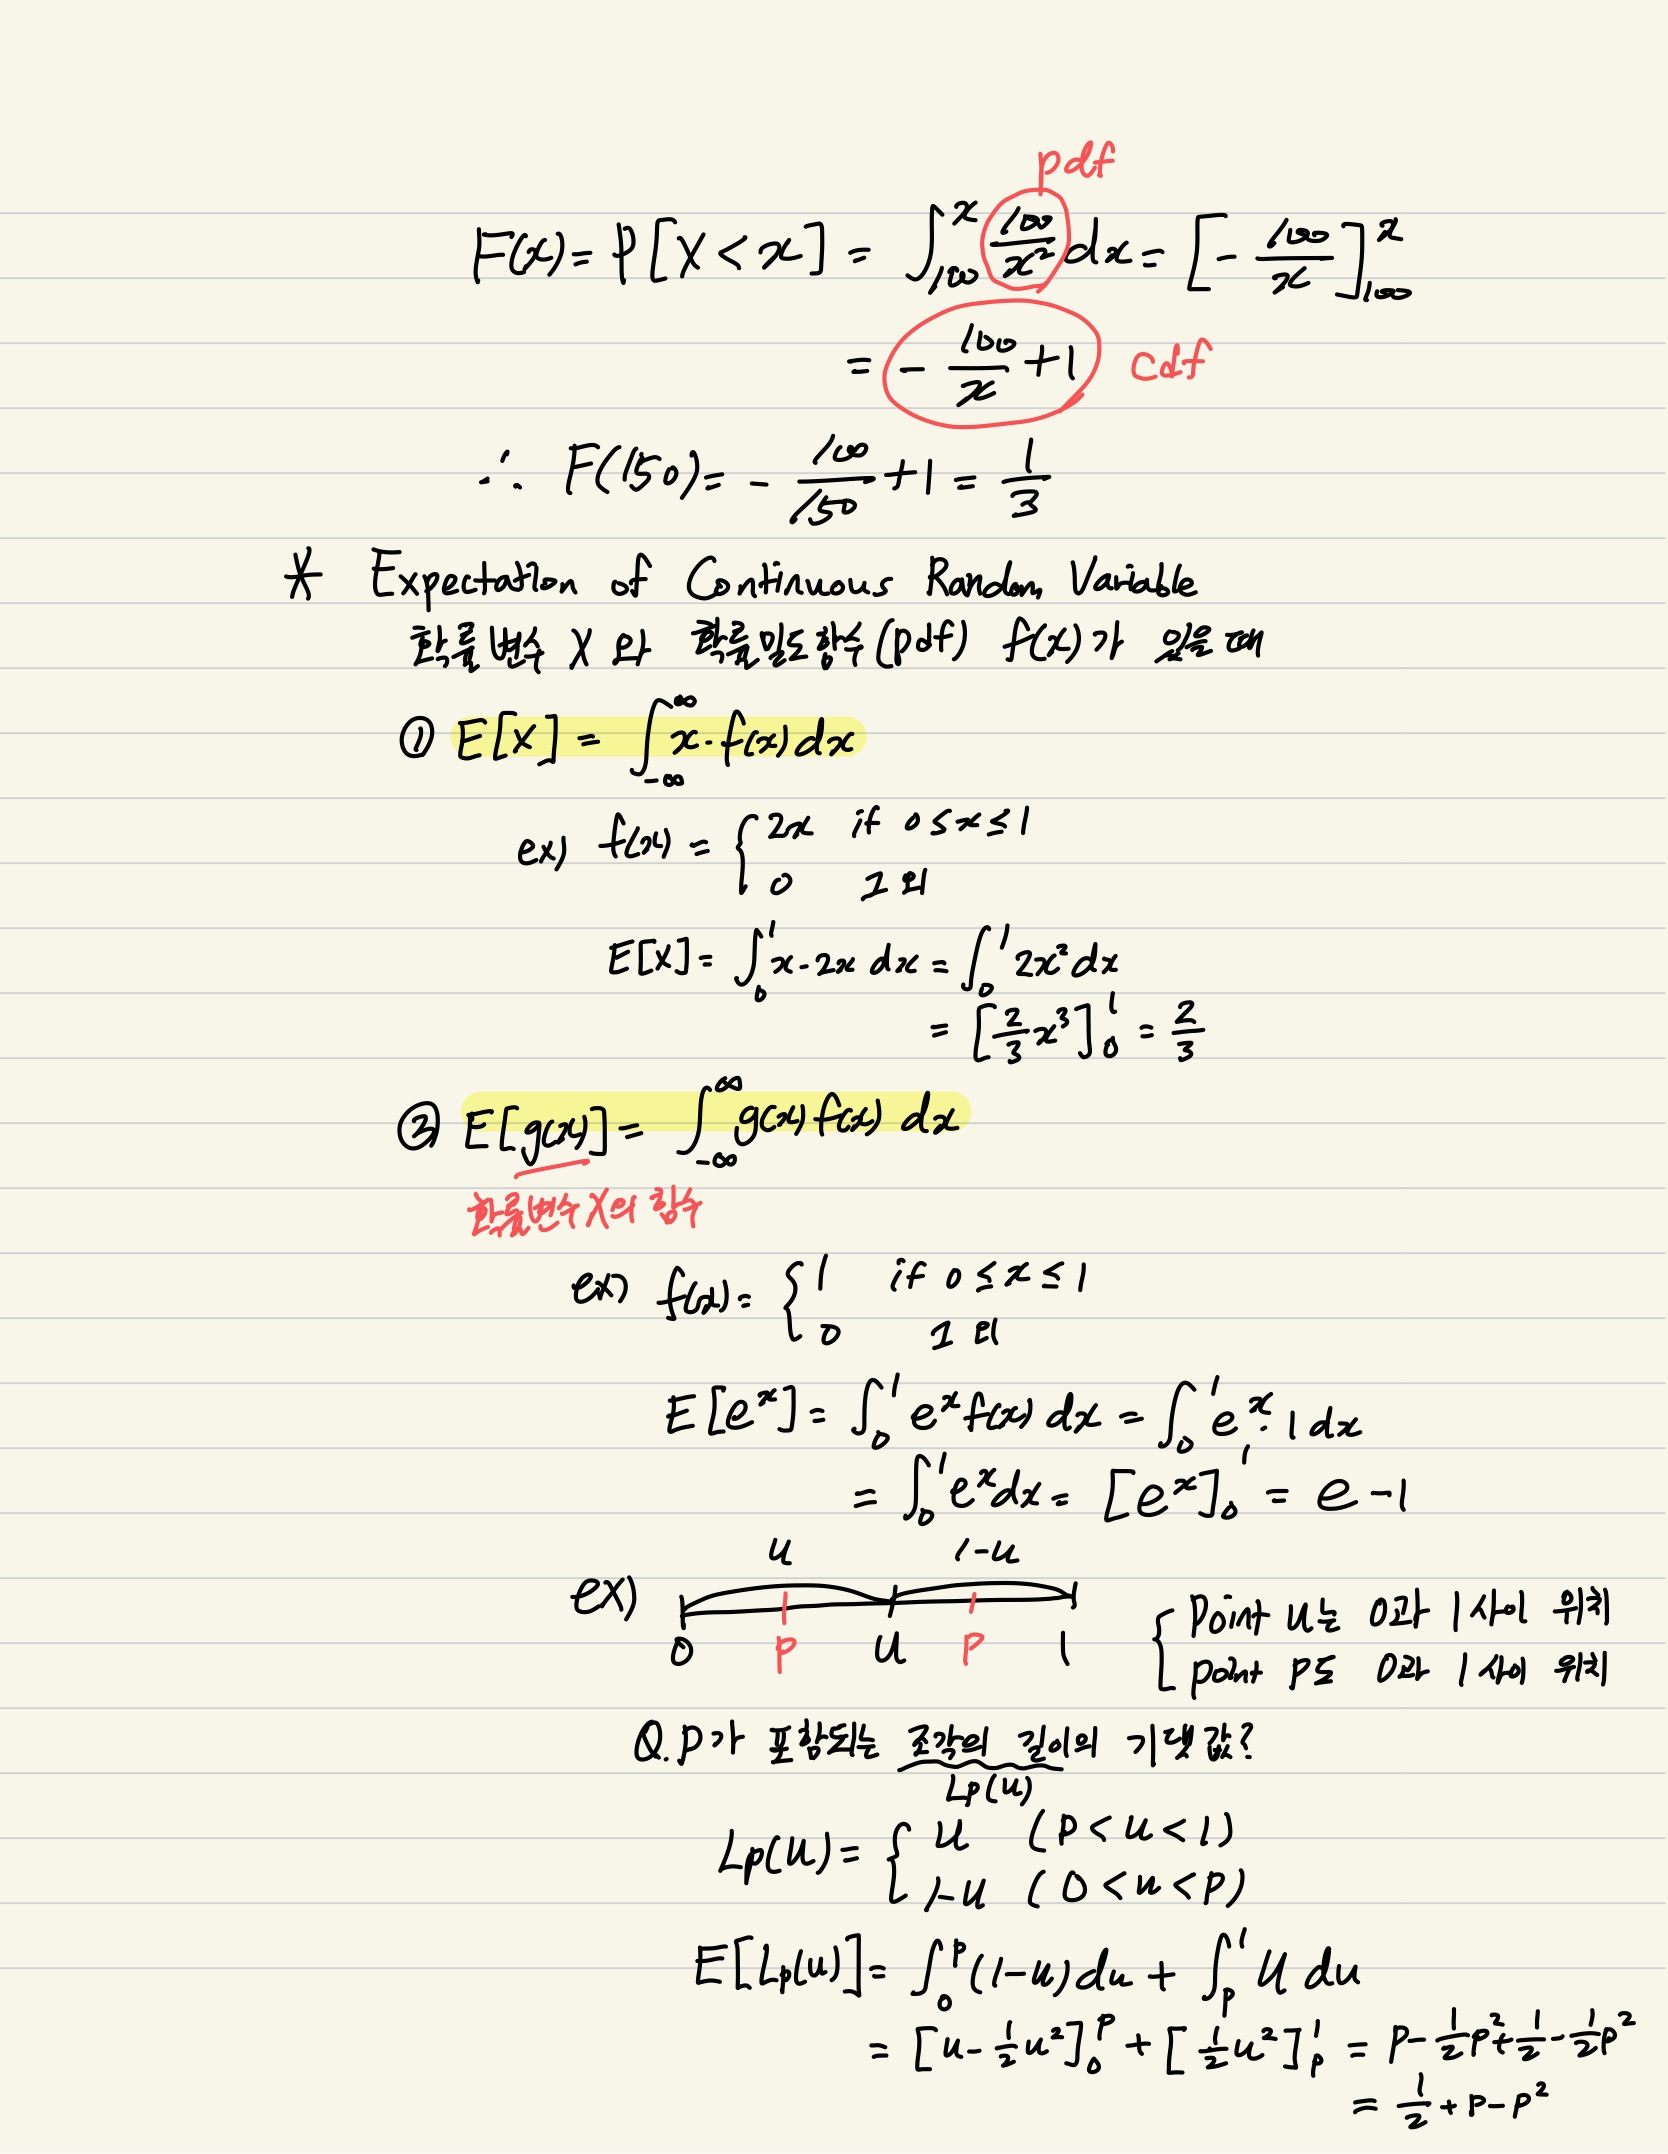 pdf
F(x) = P[X < x] = ∫₁₀₀ˣ 100/x² dx = [-100/x]₁₀₀ˣ
= -100/x + 1 cdf
∴ F(150) = -100/150 + 1 = 1/3
* Expectation of Continuous Random Variable
확률변수 X와 확률밀도함수(pdf) f(x)가 있을 때
① E[X] = ∫₋∞^∞ x·f(x)dx
ex) f(x) = { 2x if 0≤x≤1
0 그 외
E[X] = ∫₀¹ x·2x dx = ∫₀¹ 2x² dx
= [2/3 x³]₀¹ = 2/3
② E[g(x)] = ∫₋∞^∞ g(x)f(x) dx
확률변수 X의 함수
ex) f(x) = { 1 if 0≤x≤1
0 그 외
E[eˣ] = ∫₀¹ eˣf(x) dx = ∫₀¹ eˣ·1 dx
= ∫₀¹ eˣdx = [eˣ]₀¹ = e-1
u 1-u
ex)
0 P u P 1
{ Point u는 0과 1 사이 위치
point P도 0과 1 사이 위치
Q. P가 포함되는 조각의 길이의 기댓값?
Lp(u)
Lp(u) = { u (P<u<1)
1-u (0<u<P)
E[Lp(u)] = ∫₀ᴾ (1-u)du + ∫ₚ¹ u du
= [u - 1/2 u²]₀ᴾ + [1/2 u²]ₚ¹ = P - 1/2 P² + 1/2 - 1/2 P²
= 1/2 + P - P²